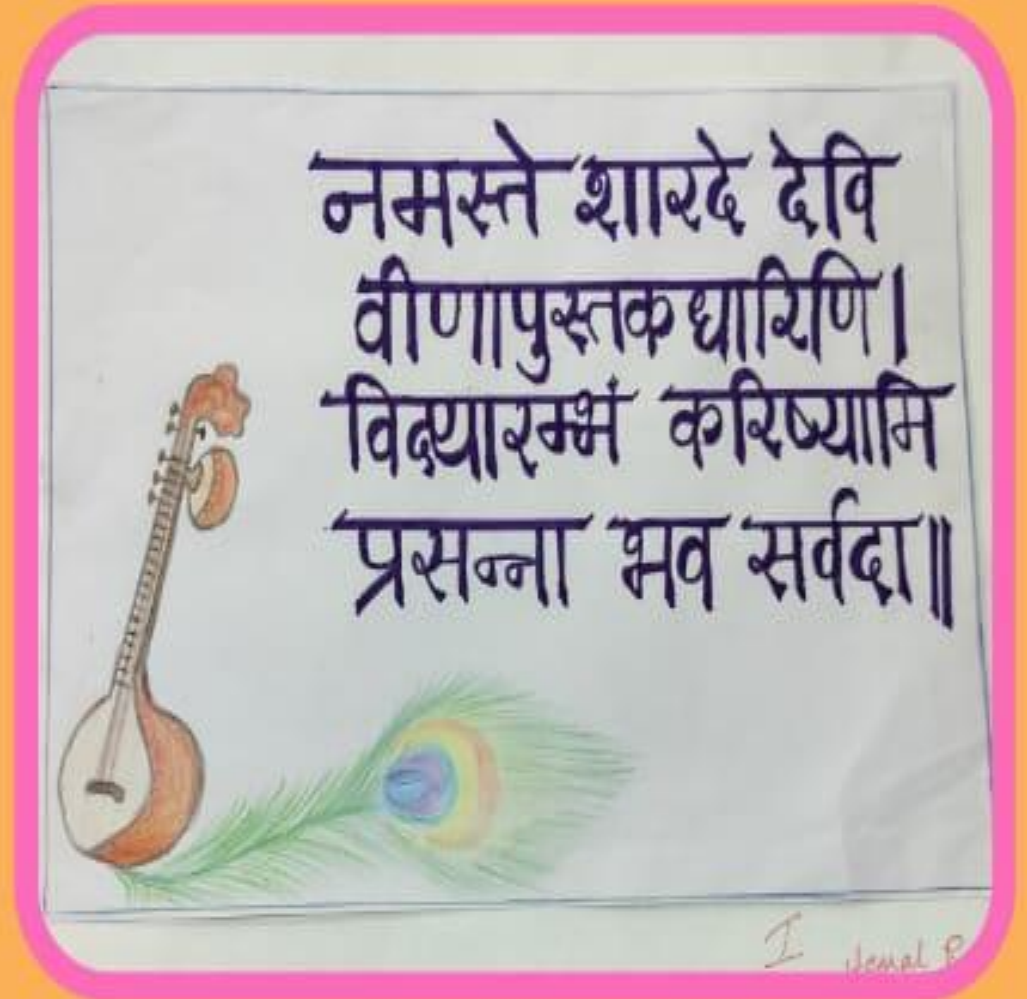 नमस्ते शारदे देवि
वीणापुस्तकधारिणि।
विद्यारम्भं करिष्यामि
प्रसन्ना भव सर्वदा॥
I